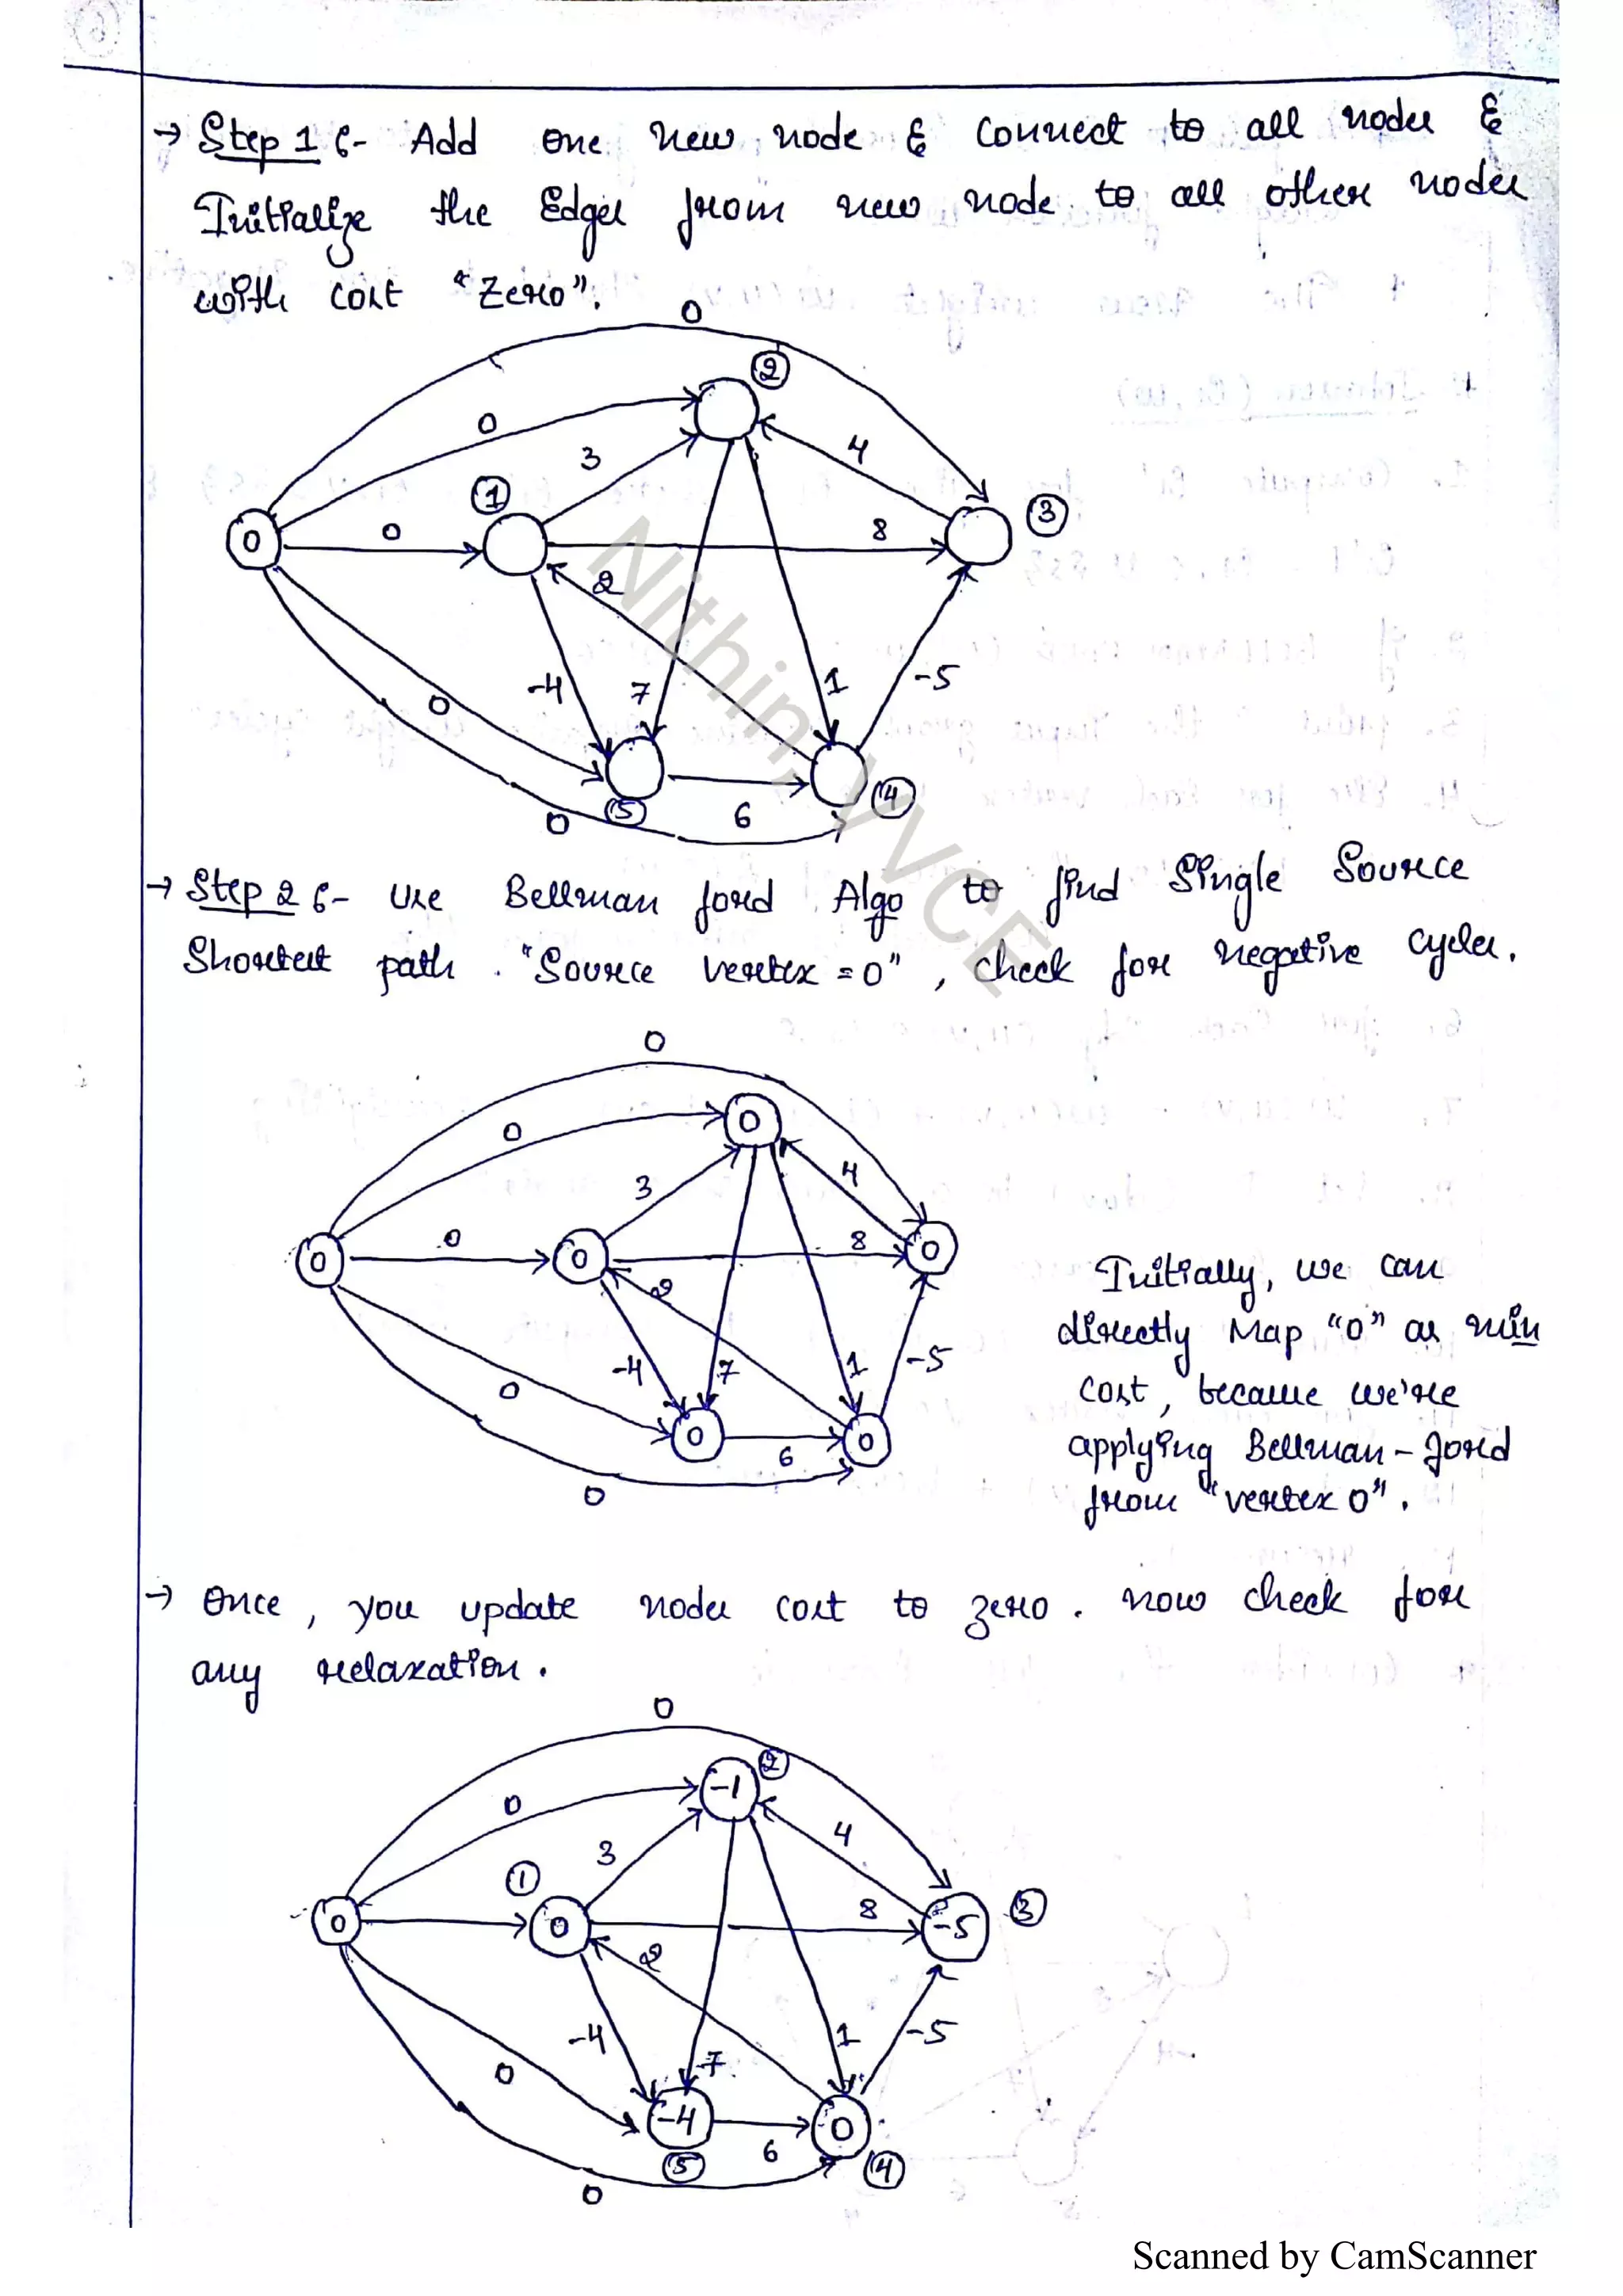 → Step 1 :- Add one new node & connect to all nodes &
Initialize the Edges from new node to all other nodes
with cost "Zero".
0
2
0
3
4
1
3
0
0
8
2
-4
7
1
-5
0
5
6
4
0
→ Step 2 :- Use Bellman ford Algo to find Single Source
Shortest path. "Source vertex = 0", check for negative cycles.
0
0
0
3
4
0
0
0
8
0
2
-4
7
1
-5
0
0
6
0
0
Initially, we can
directly Map "0" as min
cost, because we're
applying Bellman-ford
from "vertex 0".
→ Once, you update nodes cost to zero. now check for
any relaxation.
0
2
-1
0
3
4
1
0
0
8
-5
3
2
-4
7
1
-5
0
-4
6
0
5
4
0
Nithin, VVCE
Scanned by CamScanner